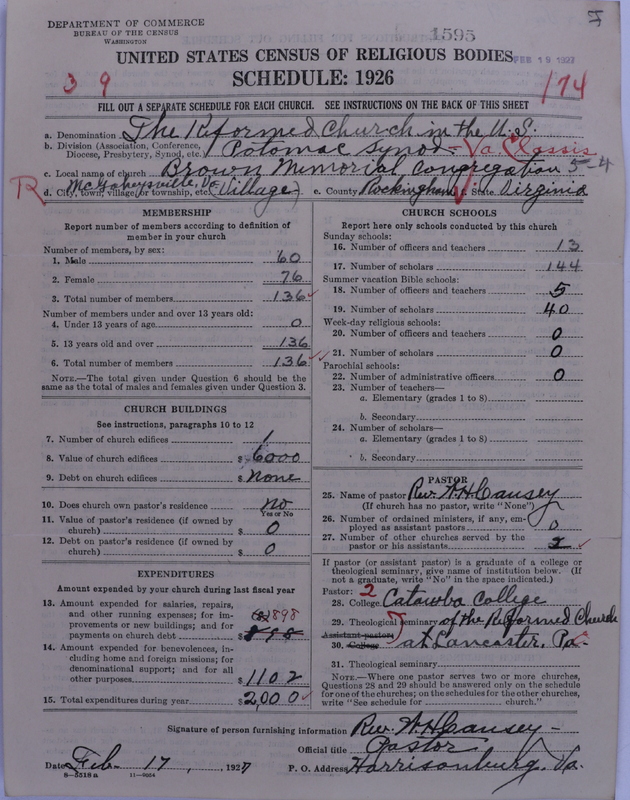 DEPARTMENT OF COMMERCE
BUREAU OF THE CENSUS
WASHINGTON
1595
UNITED STATES CENSUS OF RELIGIOUS BODIES
FEB 19 1927
SCHEDULE: 1926
3 9
174
FILL OUT A SEPARATE SCHEDULE FOR EACH CHURCH. SEE INSTRUCTIONS ON THE BACK OF THIS SHEET
a. Denomination The Reformed Church in the U.S.
b. Division (Association, Conference, Diocese, Presbytery, Synod, etc.) Potomac Synod - Va Classis
c. Local name of church Brown Memorial Congregation 5-4
R
d. City, town, village, or township, etc. McGaheysville, Va (Village) e. County Rockingham f. State Virginia
MEMBERSHIP
Report number of members according to definition of
member in your church
Number of members, by sex:
1. Male 60
2. Female 76
3. Total number of members 136
Number of members under and over 13 years old:
4. Under 13 years of age 0
5. 13 years old and over 136
6. Total number of members 136
NOTE.—The total given under Question 6 should be the
same as the total of males and females given under Question 3.
CHURCH BUILDINGS
See instructions, paragraphs 10 to 12
7. Number of church edifices 1
8. Value of church edifices $ 6000
9. Debt on church edifices $ None
10. Does church own pastor's residence no
Yes or No
11. Value of pastor's residence (if owned by
church) $ 0
12. Debt on pastor's residence (if owned by
church) $ 0
EXPENDITURES
Amount expended by your church during last fiscal year
13. Amount expended for salaries, repairs,
and other running expenses; for im-
provements or new buildings; and for
payments on church debt $ 898
898
14. Amount expended for benevolences, in-
cluding home and foreign missions; for
denominational support; and for all
other purposes $ 1102
15. Total expenditures during year $ 2,000
CHURCH SCHOOLS
Report here only schools conducted by this church
Sunday schools:
16. Number of officers and teachers 13
17. Number of scholars 144
Summer vacation Bible schools:
18. Number of officers and teachers 5
19. Number of scholars 40
Week-day religious schools:
20. Number of officers and teachers 0
21. Number of scholars 0
Parochial schools:
22. Number of administrative officers 0
23. Number of teachers—
a. Elementary (grades 1 to 8)
b. Secondary
24. Number of scholars—
a. Elementary (grades 1 to 8)
b. Secondary
PASTOR
25. Name of pastor Rev. A. H. Causey
(If church has no pastor, write "None")
26. Number of ordained ministers, if any, em-
ployed as assistant pastors 0
27. Number of other churches served by the
pastor or his assistants 2
If pastor (or assistant pastor) is a graduate of a college or
theological seminary, give name of institution below. (If
not a graduate, write "No" in the space indicated.)
Pastor: 2
28. College Catawba College
29. Theological seminary of the Reformed Church
Assistant pastor:
30. College at Lancaster, Pa.
31. Theological seminary
NOTE.—Where one pastor serves two or more churches,
Questions 28 and 29 should be answered only on the schedule
for one of the churches; on the schedules for the other churches,
write "See schedule for church."
Signature of person furnishing information Rev. A. H. Causey -
Official title Pastor
Date Feb - 17, 1927 P. O. Address Harrisonburg, Va.
8-5518a 11-9054